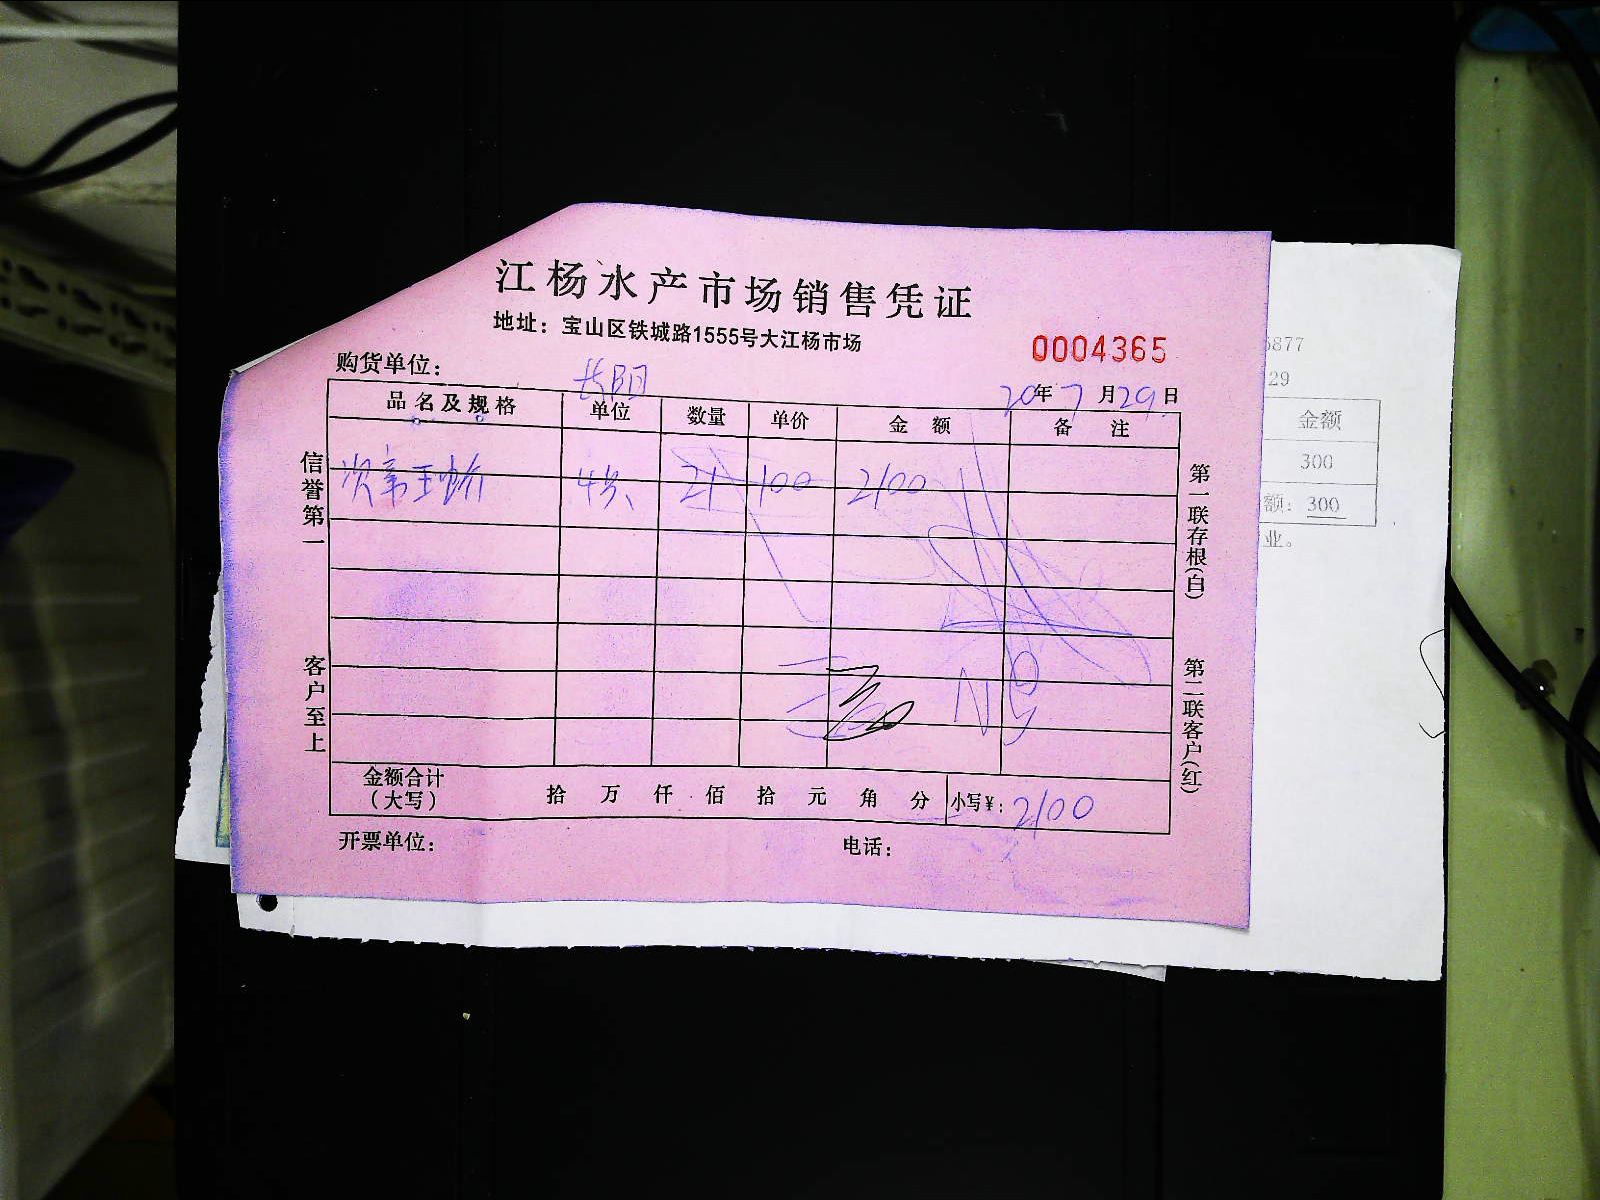 江杨水产市场销售凭证
地址：宝山区铁城路1555号大江杨市场
0004365
购货单位： 长阳
20年7月29日
品名及规格 单位 数量 单价 金额 备注
21 100 2100
金额合计（大写） 拾 万 仟 佰 拾 元 角 分 小写¥：2100
开票单位： 电话：
信誉第一
客户至上
第一联存根(白)
第二联客户(红)
5877
29
金额
300
额：300
业。